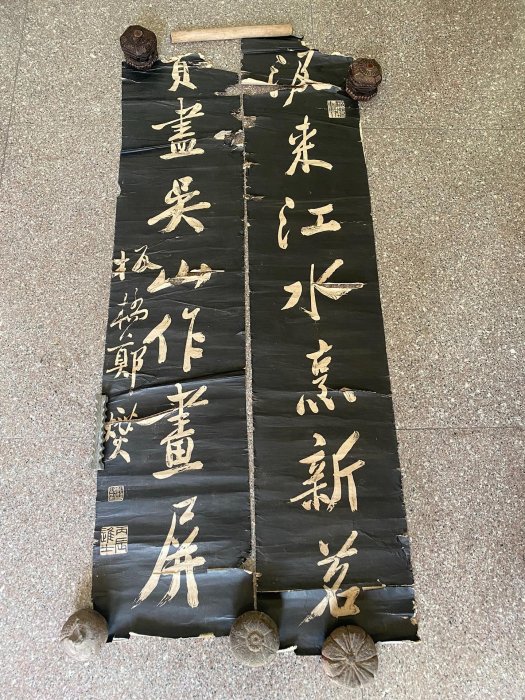 汲来江水烹新茗
買盡吳山作畫屏
板橋鄭燮
丙辰進士